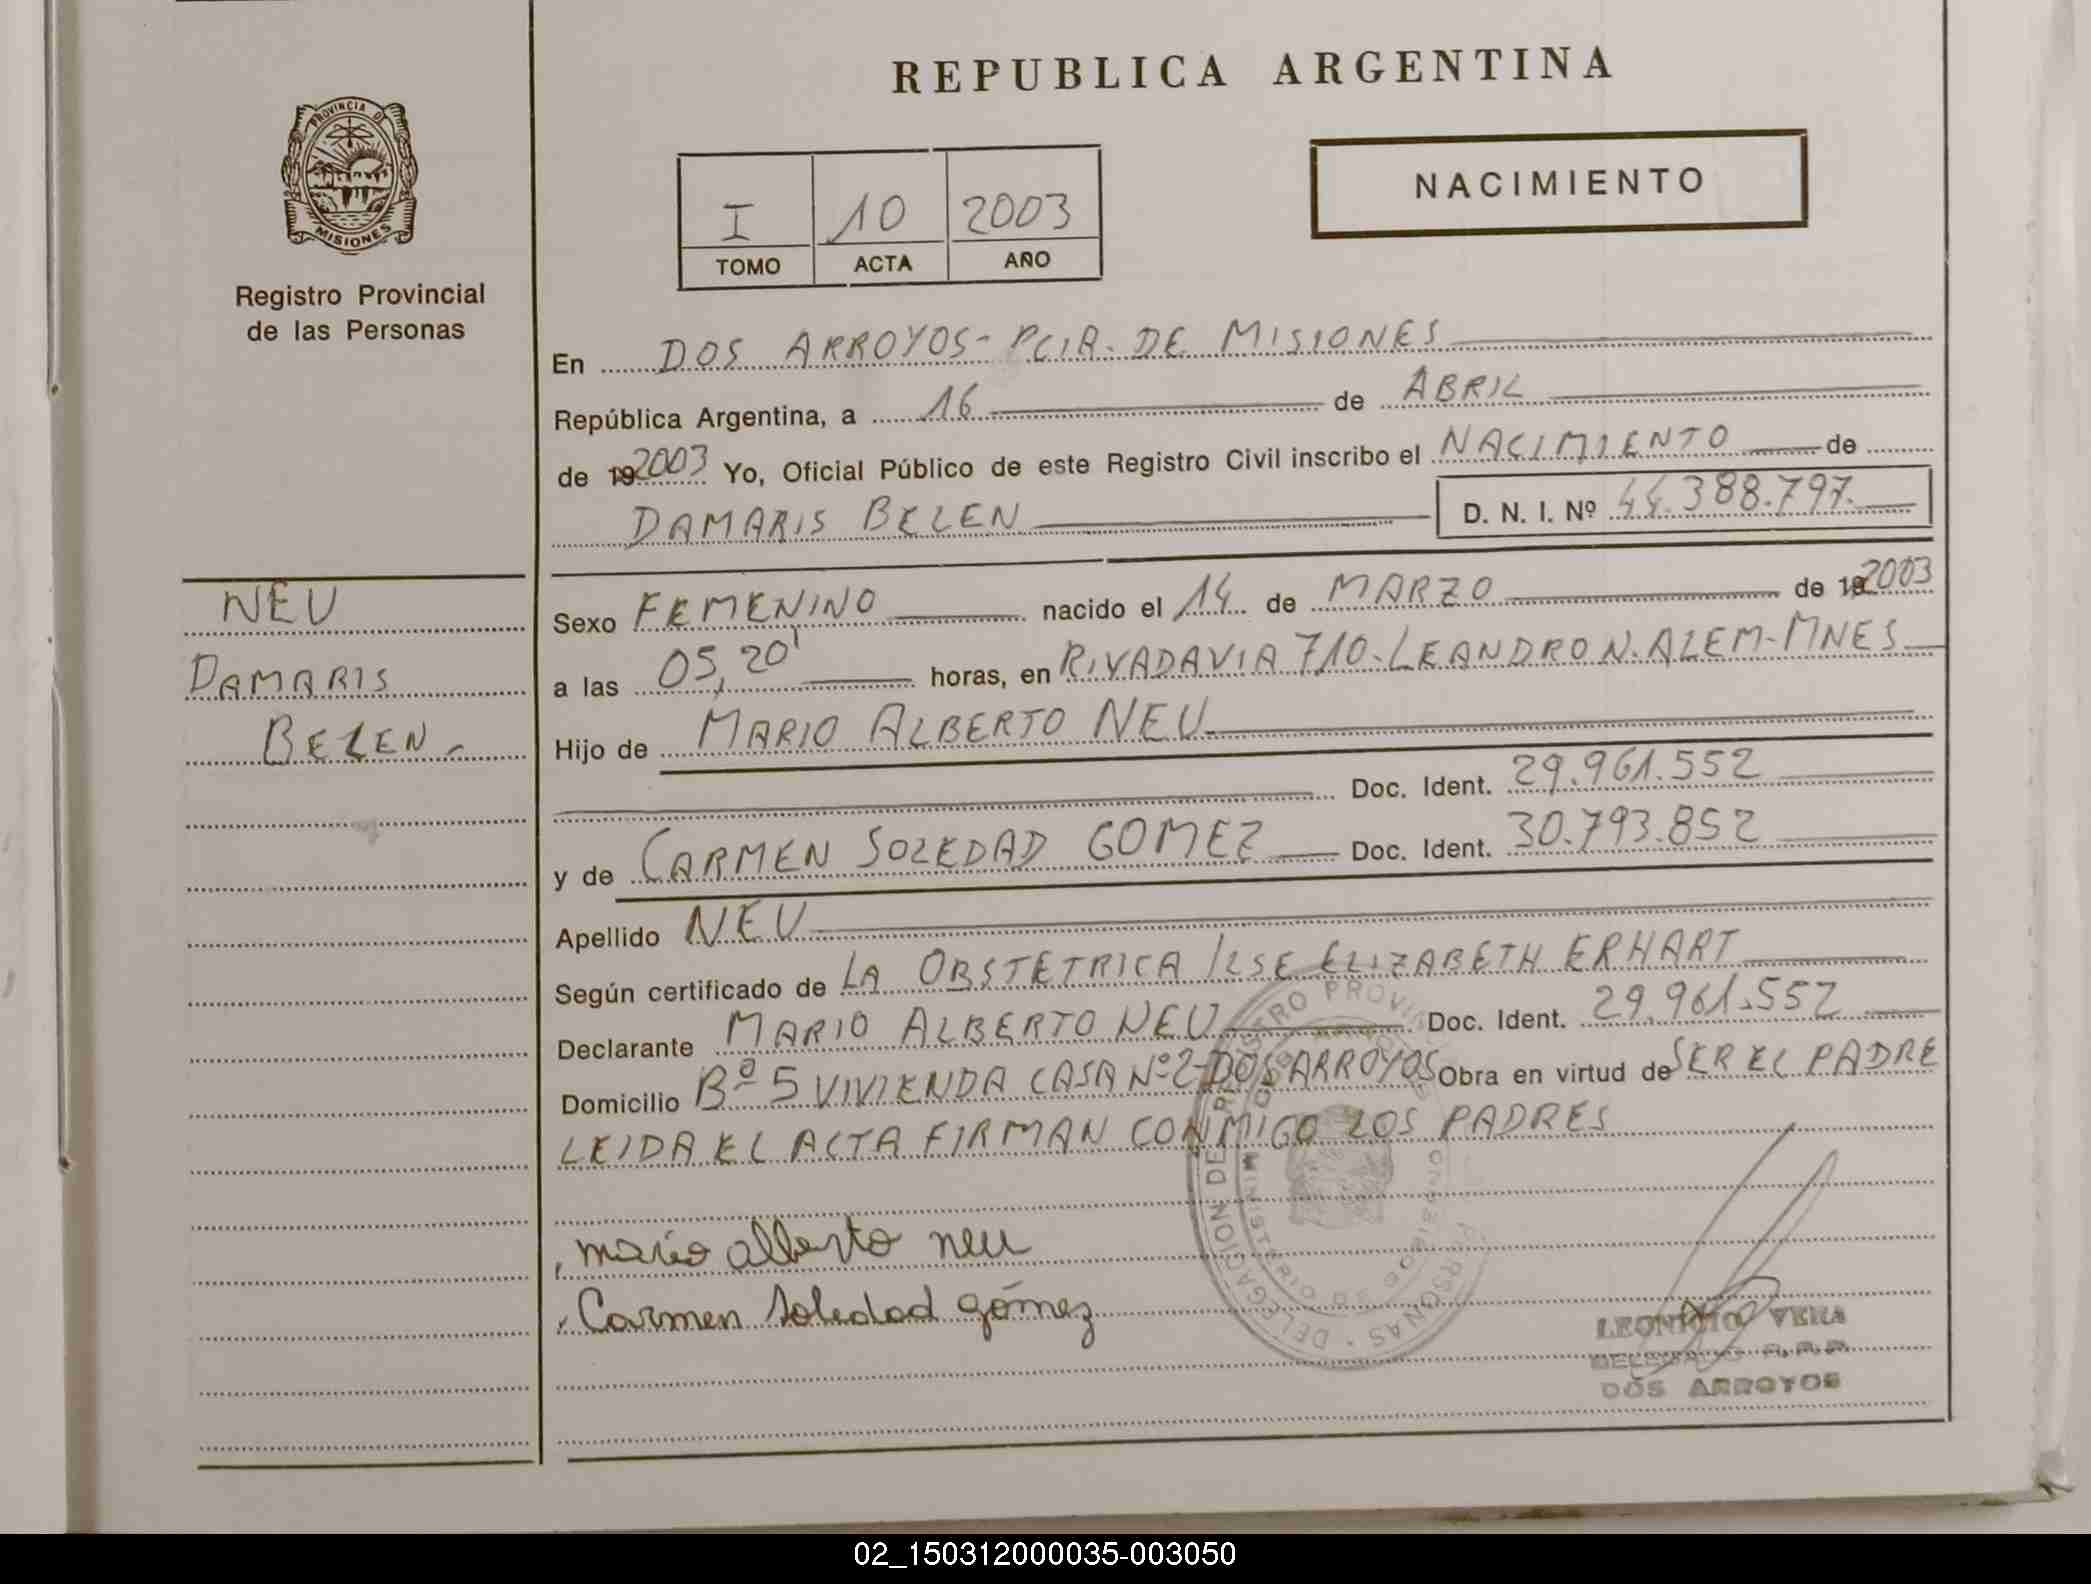 REPUBLICA ARGENTINA
PROVINCIA DE
MISIONES
Registro Provincial
de las Personas
NACIMIENTO
I 10 2003
TOMO ACTA AÑO
En DOS ARROYOS - PCIA. DE MISIONES
República Argentina, a 16 de ABRIL
de 192003 Yo, Oficial Público de este Registro Civil inscribo el NACIMIENTO de
DAMARIS BELEN D. N. I. Nº 44.388.797.
NEU
DAMARIS
BELEN.-
Sexo FEMENINO nacido el 14 de MARZO de 192003
a las 05,20' horas, en RIVADAVIA 710-LEANDRO N. ALEM-MNES
Hijo de MARIO ALBERTO NEU
Doc. Ident. 29.961.552
y de CARMEN SOLEDAD GOMEZ Doc. Ident. 30.793.852
Apellido NEU
Según certificado de LA OBSTETRICA ILSE ELIZABETH ERHART
Declarante MARIO ALBERTO NEU Doc. Ident. 29.961.552
Domicilio Bº 5 VIVIENDA CASA Nº2-DOS ARROYOS Obra en virtud de SER EL PADRE
LEIDA EL ACTA FIRMAN CONMIGO LOS PADRES
mario alberto neu
Carmen Soledad gómez
DELEGACION DEL REGISTRO PROVINCIAL PERSONAS
LEONICIO VERA
DELEGADO R.P.P.
DOS ARROYOS
02_150312000035-003050